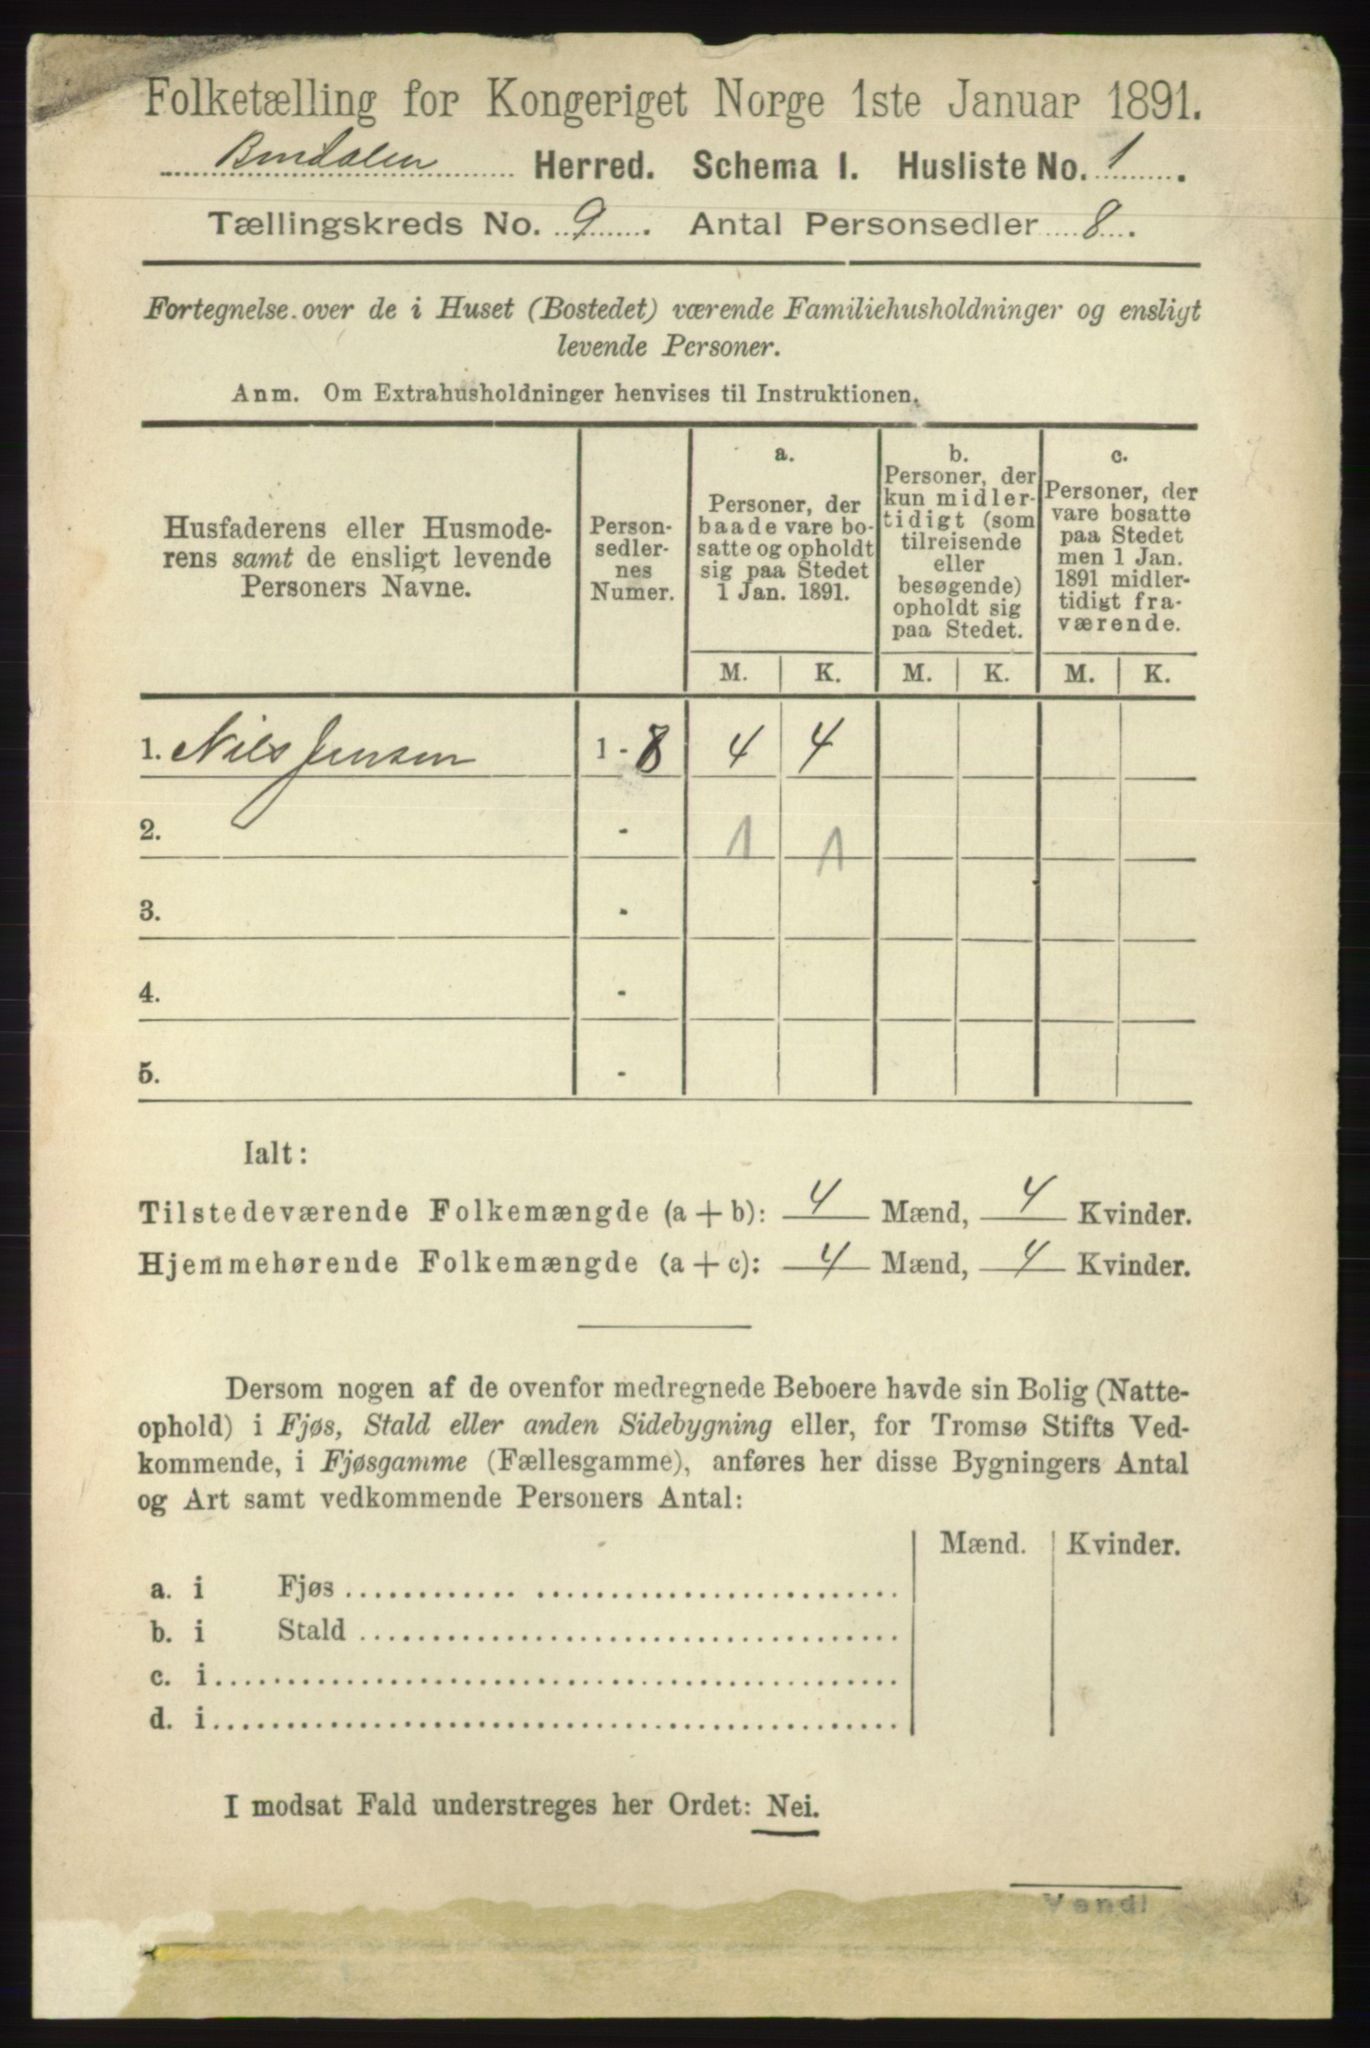 Folketælling for Kongeriget Norge 1ste Januar 1891.
Bindalen Herred. Schema I. Husliste No. 1.
Tællingskreds No. 9. Antal Personsedler 8.
Fortegnelse over de i Huset (Bostedet) værende Familiehusholdninger og ensligt
levende Personer.
Anm. Om Extrahusholdninger henvises til Instruktionen.
Husfaderens eller Husmode-
rens samt de ensligt levende
Personers Navne.
Person-
sedler-
nes
Numer.
a.
Personer, der
baade vare bo-
satte og opholdt
sig paa Stedet
1 Jan. 1891.
b.
Personer, der
kun midler-
tidigt (som
tilreisende
eller
besøgende)
opholdt sig
paa Stedet.
c.
Personer, der
vare bosatte
paa Stedet
men 1 Jan.
1891 midler-
tidigt fra-
værende.
M. K. M. K. M. K.
1. Nils Jensen 1 - 8 4 4
2. - 1 1
3. -
4. -
5. -
Ialt:
Tilstedeværende Folkemængde (a + b): 4 Mænd, 4 Kvinder.
Hjemmehørende Folkemængde (a + c): 4 Mænd, 4 Kvinder.
Dersom nogen af de ovenfor medregnede Beboere havde sin Bolig (Natte-
ophold) i Fjøs, Stald eller anden Sidebygning eller, for Tromsø Stifts Ved-
kommende, i Fjøsgamme (Fællesgamme), anføres her disse Bygningers Antal
og Art samt vedkommende Personers Antal:
Mænd. Kvinder.
a. i Fjøs
b. i Stald
c. i
d. i
I modsat Fald understreges her Ordet: Nei.
Vend!